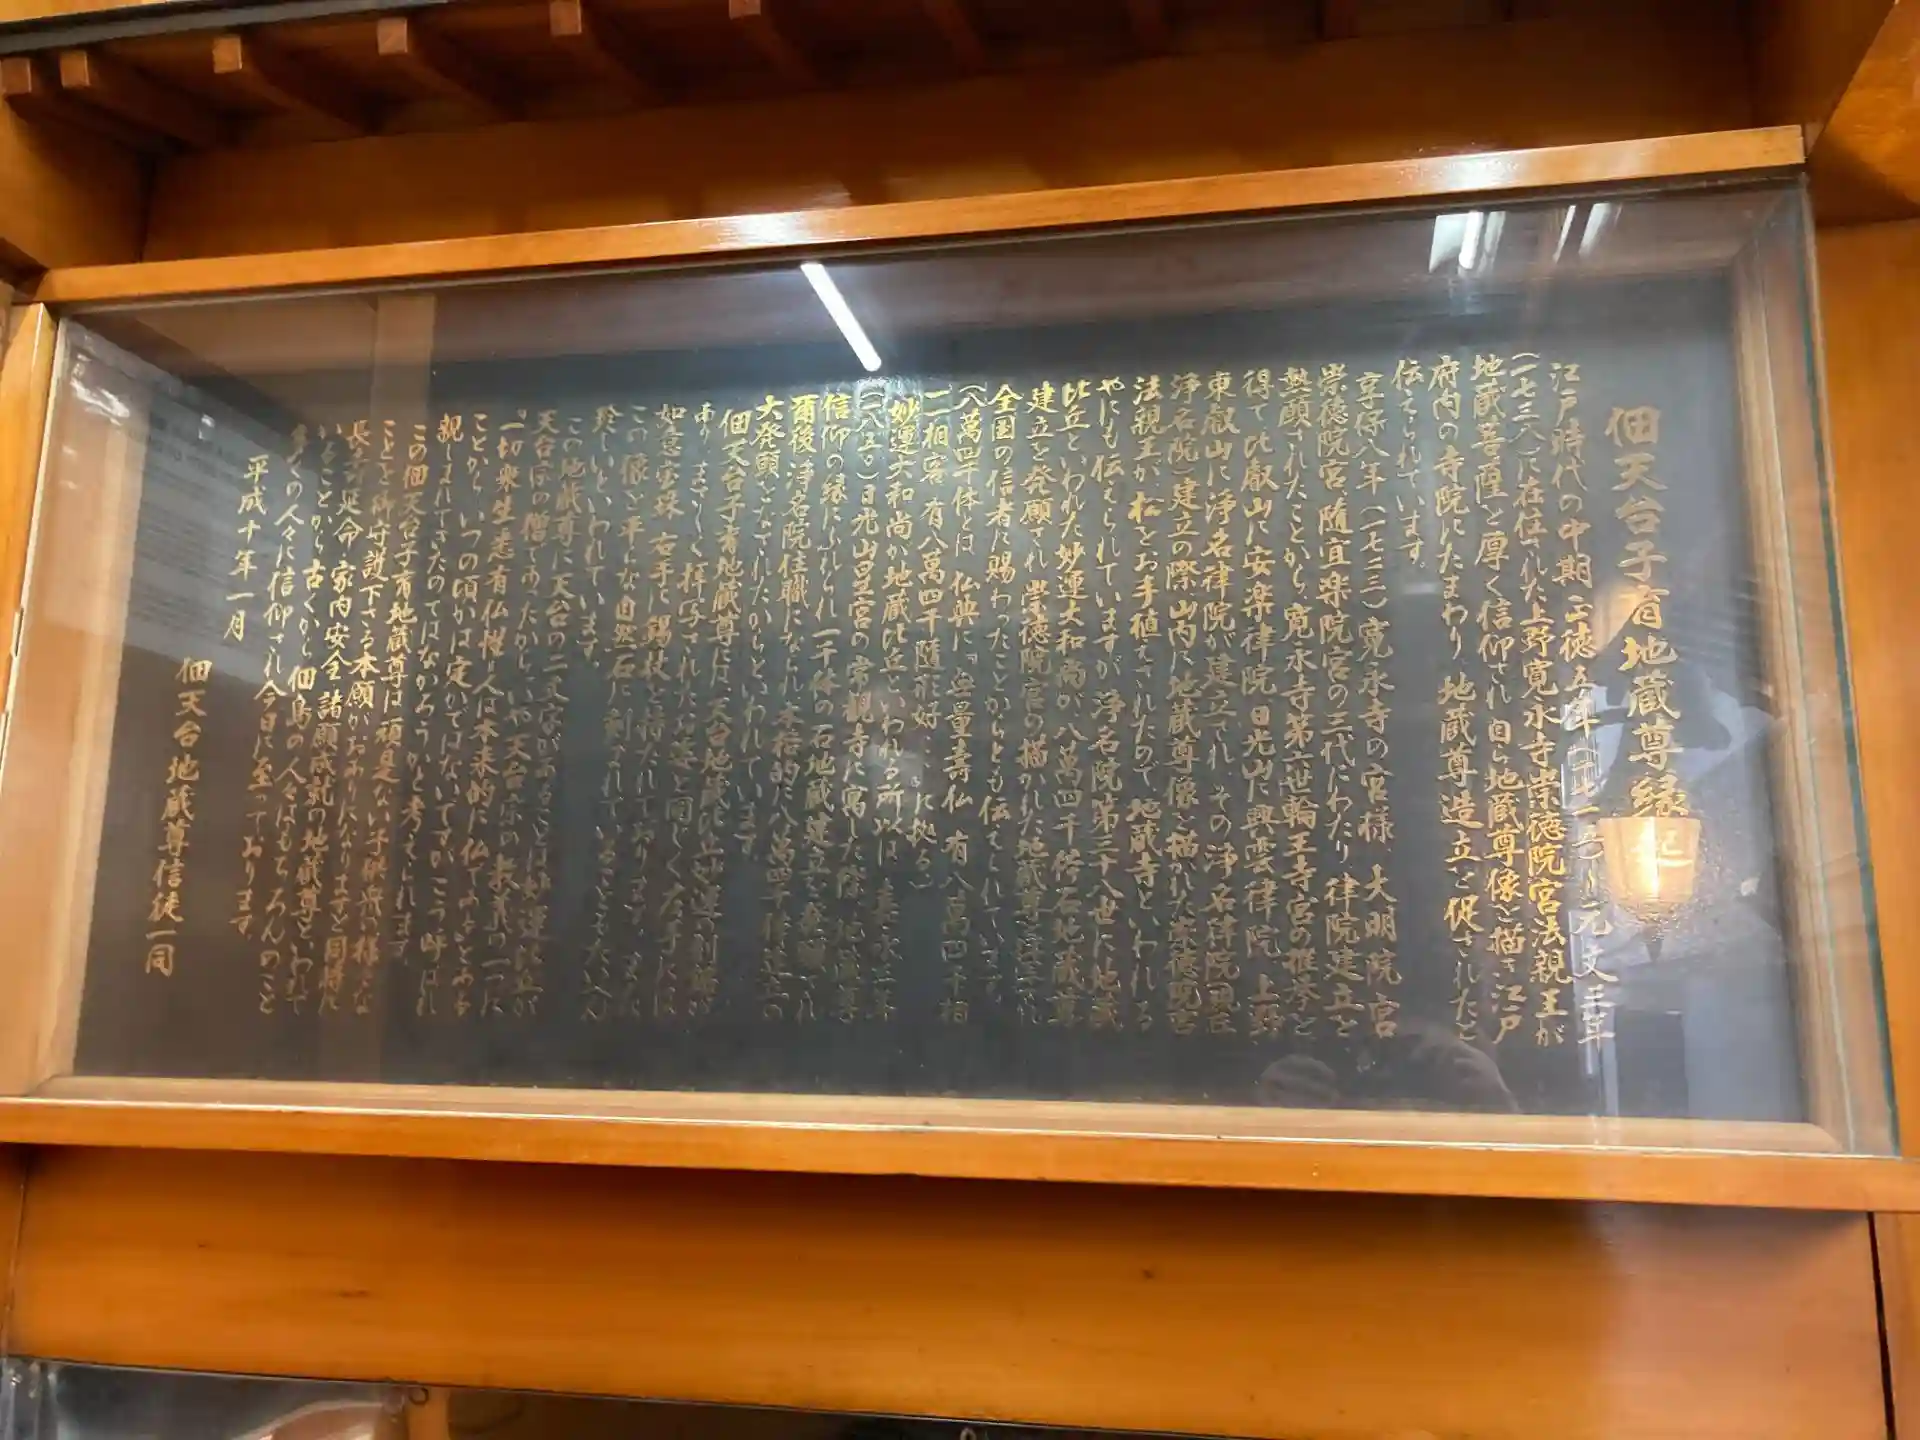 佃天台子育地蔵尊縁起
江戸時代の中期 正徳五年(一七一五)〜元文三年
(一七三八)に在住された上野寛永寺崇徳院宮法親王が
地蔵菩薩を厚く信仰され自ら地蔵尊像を描き江戸
府内の寺院にたまわり、地蔵尊造立を促されたと
伝えられています。
享保八年(一七二三)寛永寺の宮様 大明院宮
崇徳院宮、随宜楽院宮の三代にわたり律院建立を
熱願されたことから、寛永寺第 世輪王寺宮の推挙を
得て比叡山に安楽律院、日光山に興雲律院、上野
東叡山に浄名律院が建立され、その浄名律院(現在
浄名院)建立の際山内に地蔵尊像を描かれた崇徳院宮
法親王が、松をお手植えされたので、地蔵寺といわれる
やにも伝えられていますが浄名院第三十八世に地蔵
比丘といわれた妙運大和尚が八萬四千体石地蔵尊
建立を発願され崇徳院宮の描かれた地蔵尊を 写され
全国の信者に賜わったことからとも伝えられています。
(八萬四千体とは、仏典に『無量寿仏 有八萬四千相
一一相容 有八萬四千随形好…』に拠る)
妙運大和尚が地蔵比丘といわれる所以は、嘉永三年
(一八五〇)日光山星宮の常観寺に寓した際、地蔵尊
信仰の縁にふれられ一千体の石地蔵建立を発願され
爾後浄名院住職になられ本格的に八萬四千体建立の
大発願をなされたからといわれています。
佃天台子育地蔵尊には、天台地蔵比丘妙運の刻銘が
あり、まさしく拝写されたお姿と同じく左手には
如意宝珠 右手に錫杖を持たれております。また
この像を平らな自然石に刻まれていることもたいへん
珍しいといわれています。
この地蔵尊に天台の二文字があることは妙運比丘が
天台宗の僧であったから、いや天台宗の教義の一つに
『一切衆生悉有仏性』人は本来的に仏であるとある
ことから、いつの頃かは定かではないですがこう呼ばれ
親しまれてきたのではなかろうかと考えられます。
この佃天台子育地蔵尊は、頑是ない子供等の様々な
ことを御守護下さる本願がおありになりますと同時に
長寿延命、家内安全、諸願成就の地蔵尊といわれて
いることから古くから佃島の人々はもちろんのこと
多くの人々に信仰され今日に至っております。
平成十年一月
佃天台地蔵尊信徒一同